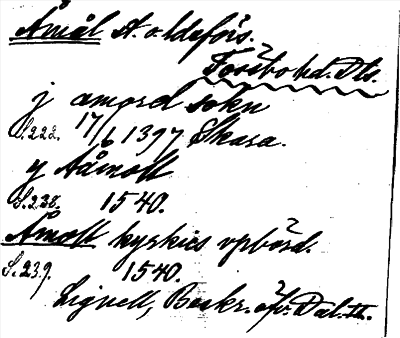 Åmål A. o ldsförs.
Tössbo hd. Dls.
j amord sokn
S.222. 17/6 1397 Skara.
y Aåmoll
S.238. 1540.
Åmoll kyrkies vpbörd.
S.239. 1540.
Lignell, Beskr. öfv. Dal. II.